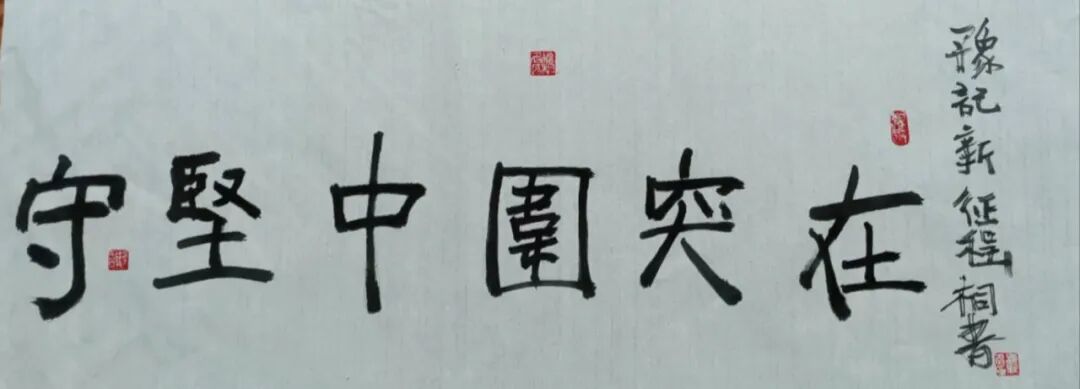 豫記新征程 桐書
在突圍中堅守